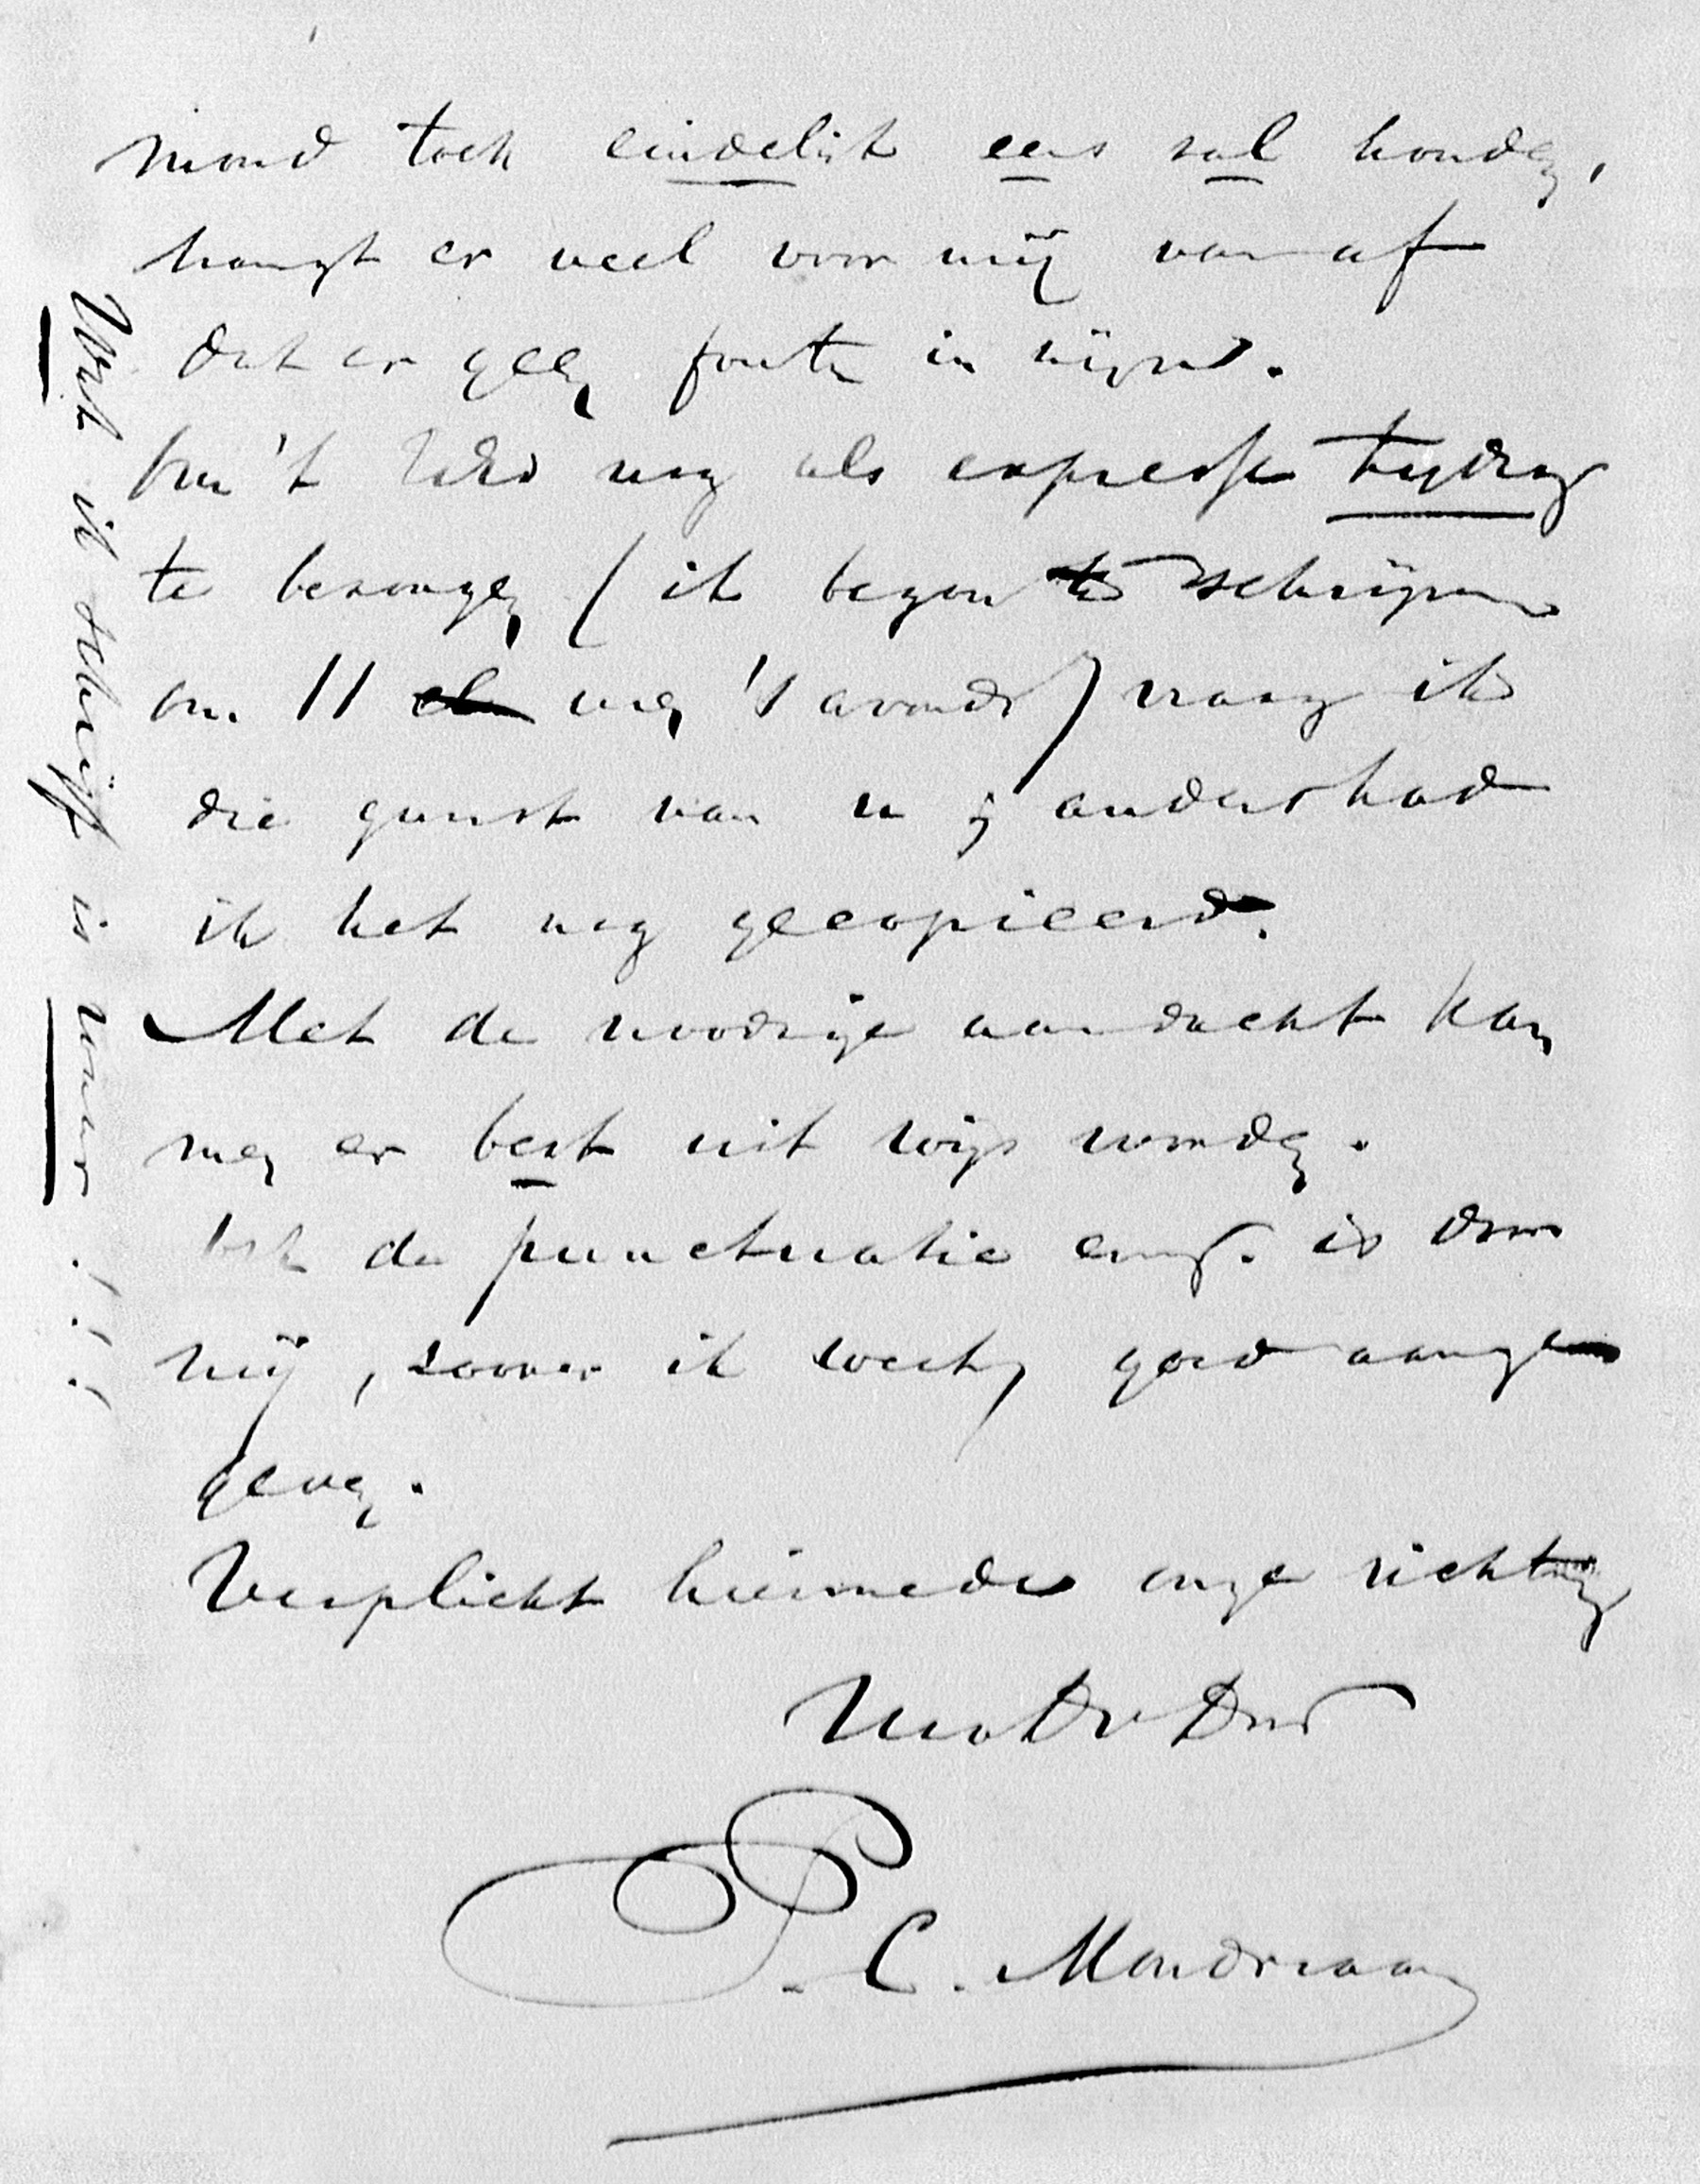 mond toch eindelijk eens zal houden,
hangt er veel voor mij van af
dat er geen fouten in zijn.
Om 't nog als expresse tijdig
te bezorgen (ik begon te schrijven
om 11 uen 's avonds) vraag ik
die gunst van u; anders had
ik het nog gecopieerd.
Met de noodige aandacht kan
men er best uit wijs worden.
Ook de punctuatie enz. is door
mij, zoover ik weet, goed aange-
geven.
Verplicht hiermede onze richting
P. C. Mondriaan
Want ik schrijf is waar!!!